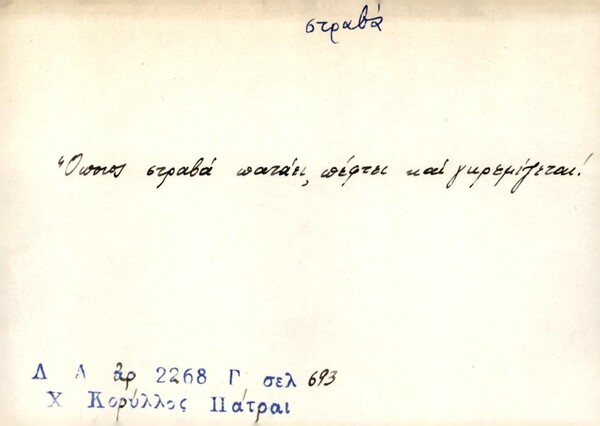 στραβά
Ὅποιος στραβά πατάει, πέφτει καί γκρεμίζεται!
Λ Α ἀρ 2268 Γ σελ 693
Χ Κορύλλος Πάτραι